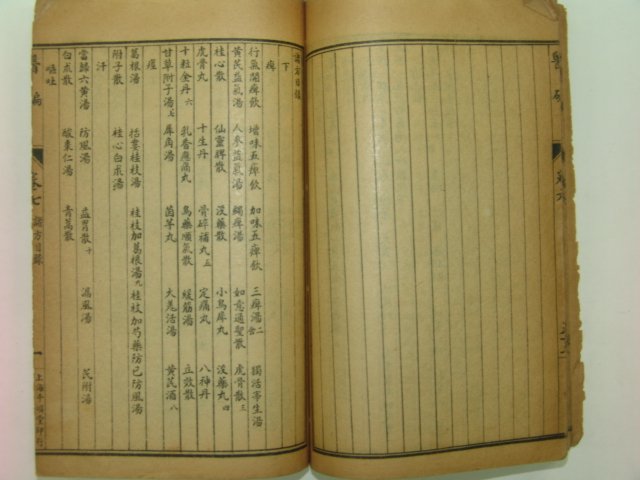 諸方目錄
下
痺
行氣開痺飲 增味五痺飲 加味五痺飲 三痺湯二 獨活寄生湯
黃芪益氣湯 人參益氣湯 蠲痺湯 如意通聖散 虎骨散三
桂心散 仙靈脾散 沒藥散 小烏犀丸 沒藥丸四
虎骨丸 十生丹 骨碎補丸五 定痛丸 八神丹
十粒金丹六 乳香應痛丸 烏藥順氣散 緩筋湯 立效散
甘草附子湯七 犀角湯 茵芋丸 大羌活湯 黃芪酒八
痙
葛根湯 括蔞桂枝湯 桂枝加葛根湯九 桂枝加芍藥防已防風湯
附子散 桂心白朮湯
汗
當歸六黃湯 防風湯 益胃散十 漏風湯 芪附湯
白朮散 酸棗仁湯 青蒿散
嘔吐
卷七 諸方目錄 一 上海千頃堂印行